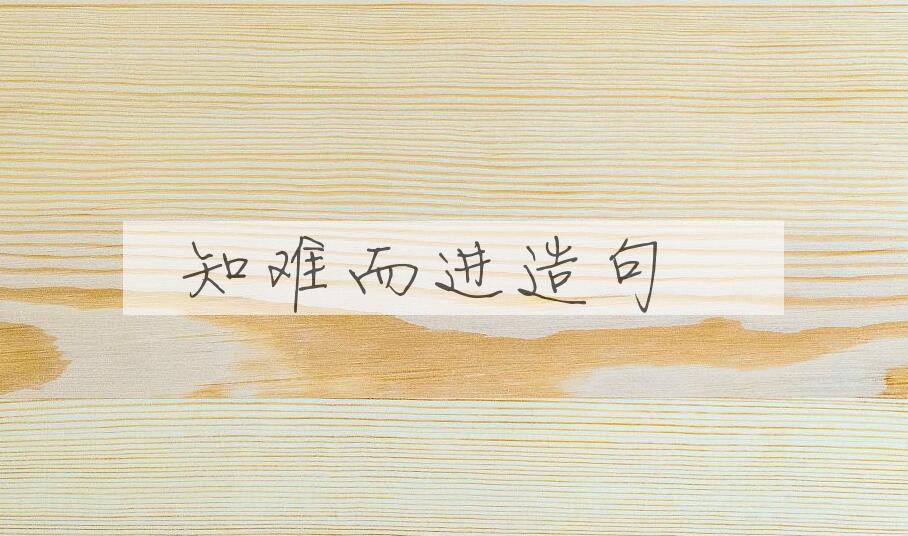 知难而进造句